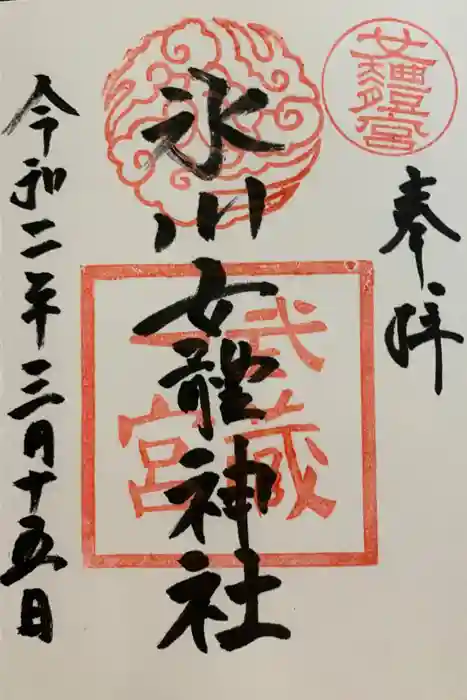 奉拝
女體宮
氷川女體神社
武蔵
一宮
令和二年三月十五日